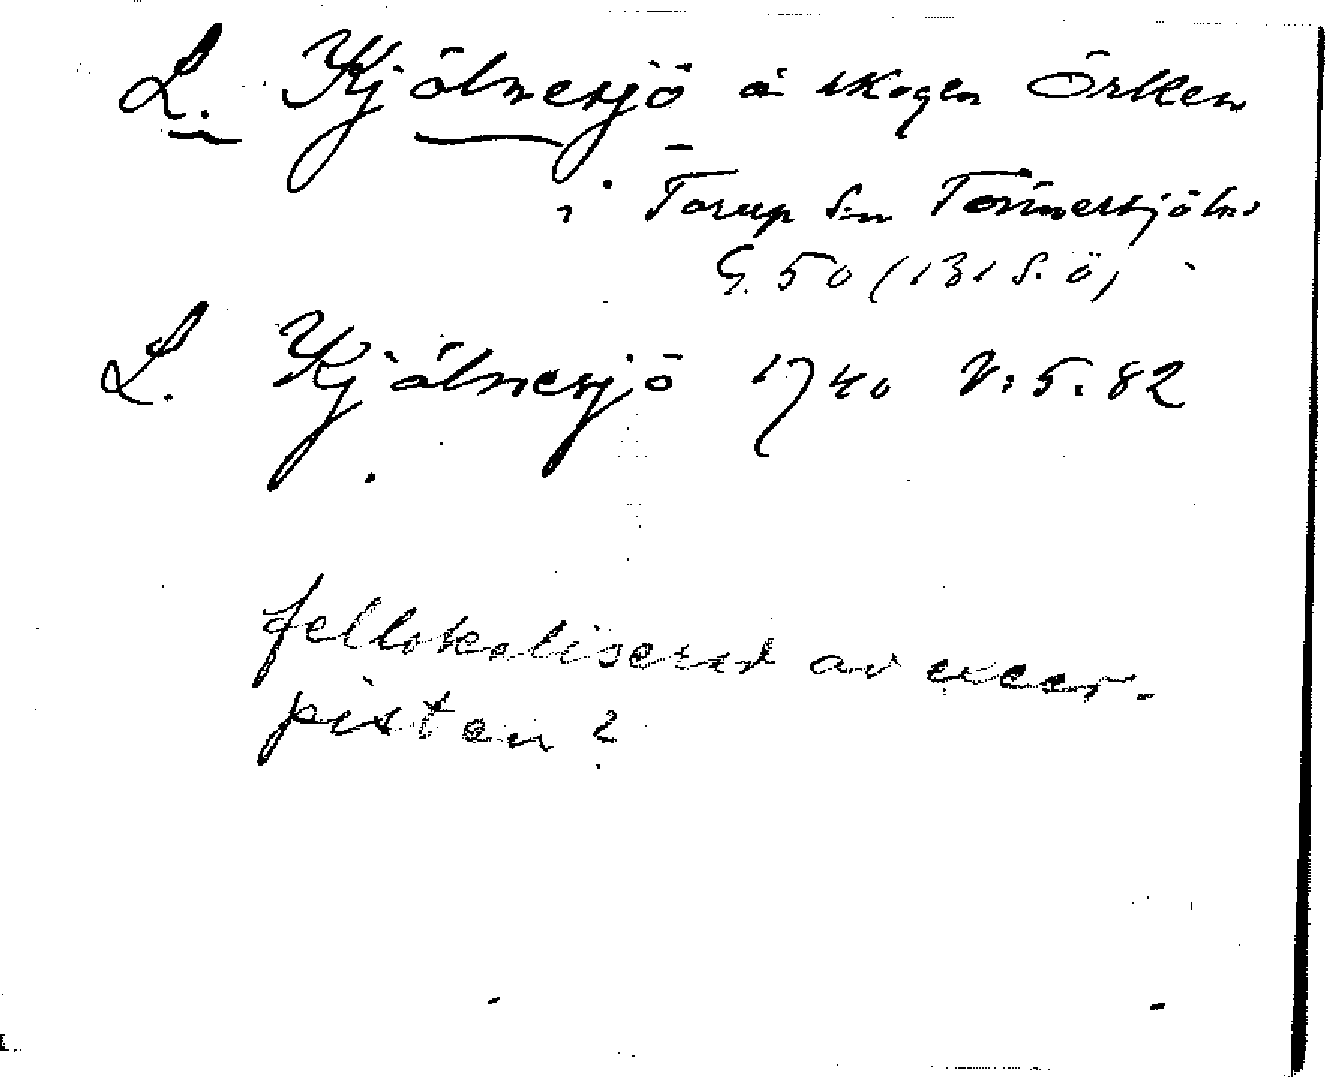 L. Kjölnesjö å skogen Örken
i Torup Sn Tönnersjö hd
G. 50 (131 S. ö)
L. Kjölnesjö 1740 V: 5. 82
fellokaliserad av excer-
pisten?